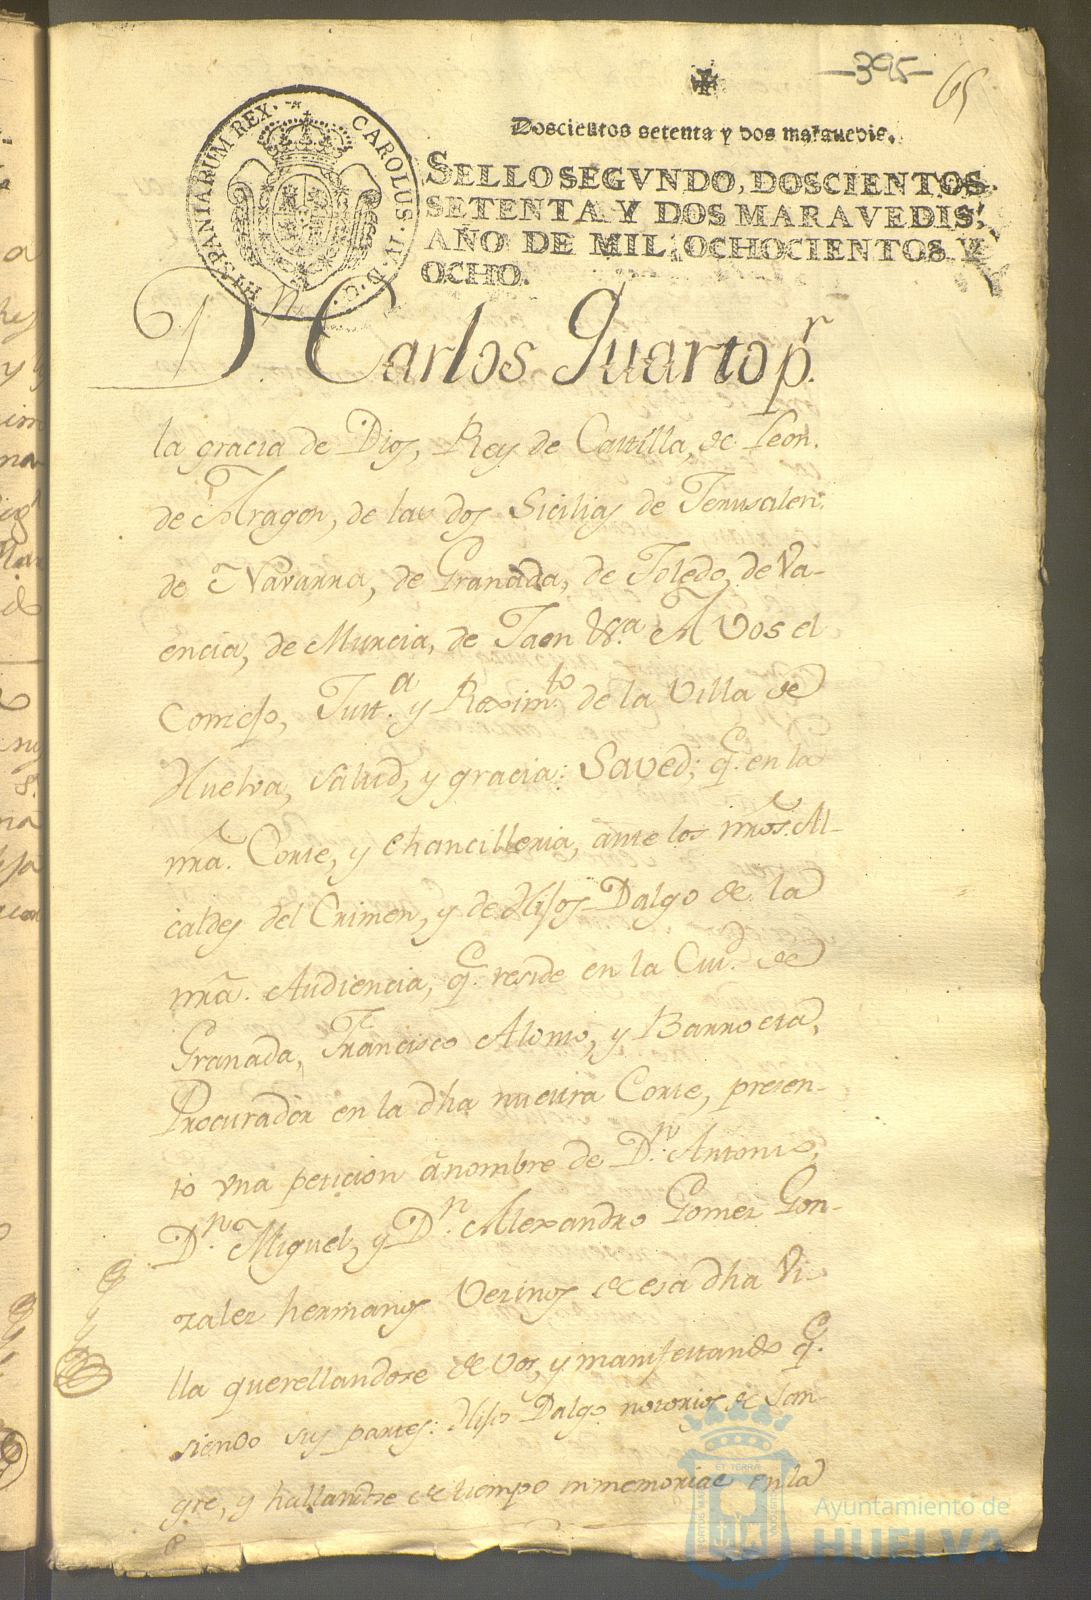 -395-
65
Doscientos setenta y dos maravedis.
SELLO SEGVNDO, DOSCIENTOS
SETENTA Y DOS MARAVEDIS,
AÑO DE MIL OCHOCIENTOS Y
OCHO.
CAROLUS IV D. G. HISPANIARUM REX.
Dn. Carlos Quarto pr.
la gracia de Dios, Rey de Castilla, de Leon.
de Aragon, de las dos Sicilias de Jerusalen.
de Navarra, de Granada, de Toledo, de Va-
encia, de Murcia, de Jaen &a. A Vos el
Concejo, Justa. y Reximto. de la Villa de
Huelva, salud, y gracia: Saved; q. en la
nra. Corte, y chancilleria, ante los nros. Al-
caldes del Crimen, y de Hijos Dalgo de la
nra. Audiencia, q. reside en la Ciud. de
Granada, Francisco Alonso, y Barroeta,
Procurador en la dha nuestra Corte, presen-
to vna peticion â nombre de Dn. Antonio,
Dn. Miguel, y Dn. Alexandro Gomez Gon-
zalez hermanos Vezinos de esa dha Vi-
lla querellandose de Vos, y manifestando q.
siendo sus partes: Hijo Dalgo notorios de San-
gre, y hallandose de tiempo inmemorial en la
Ayuntamiento de
HUELVA